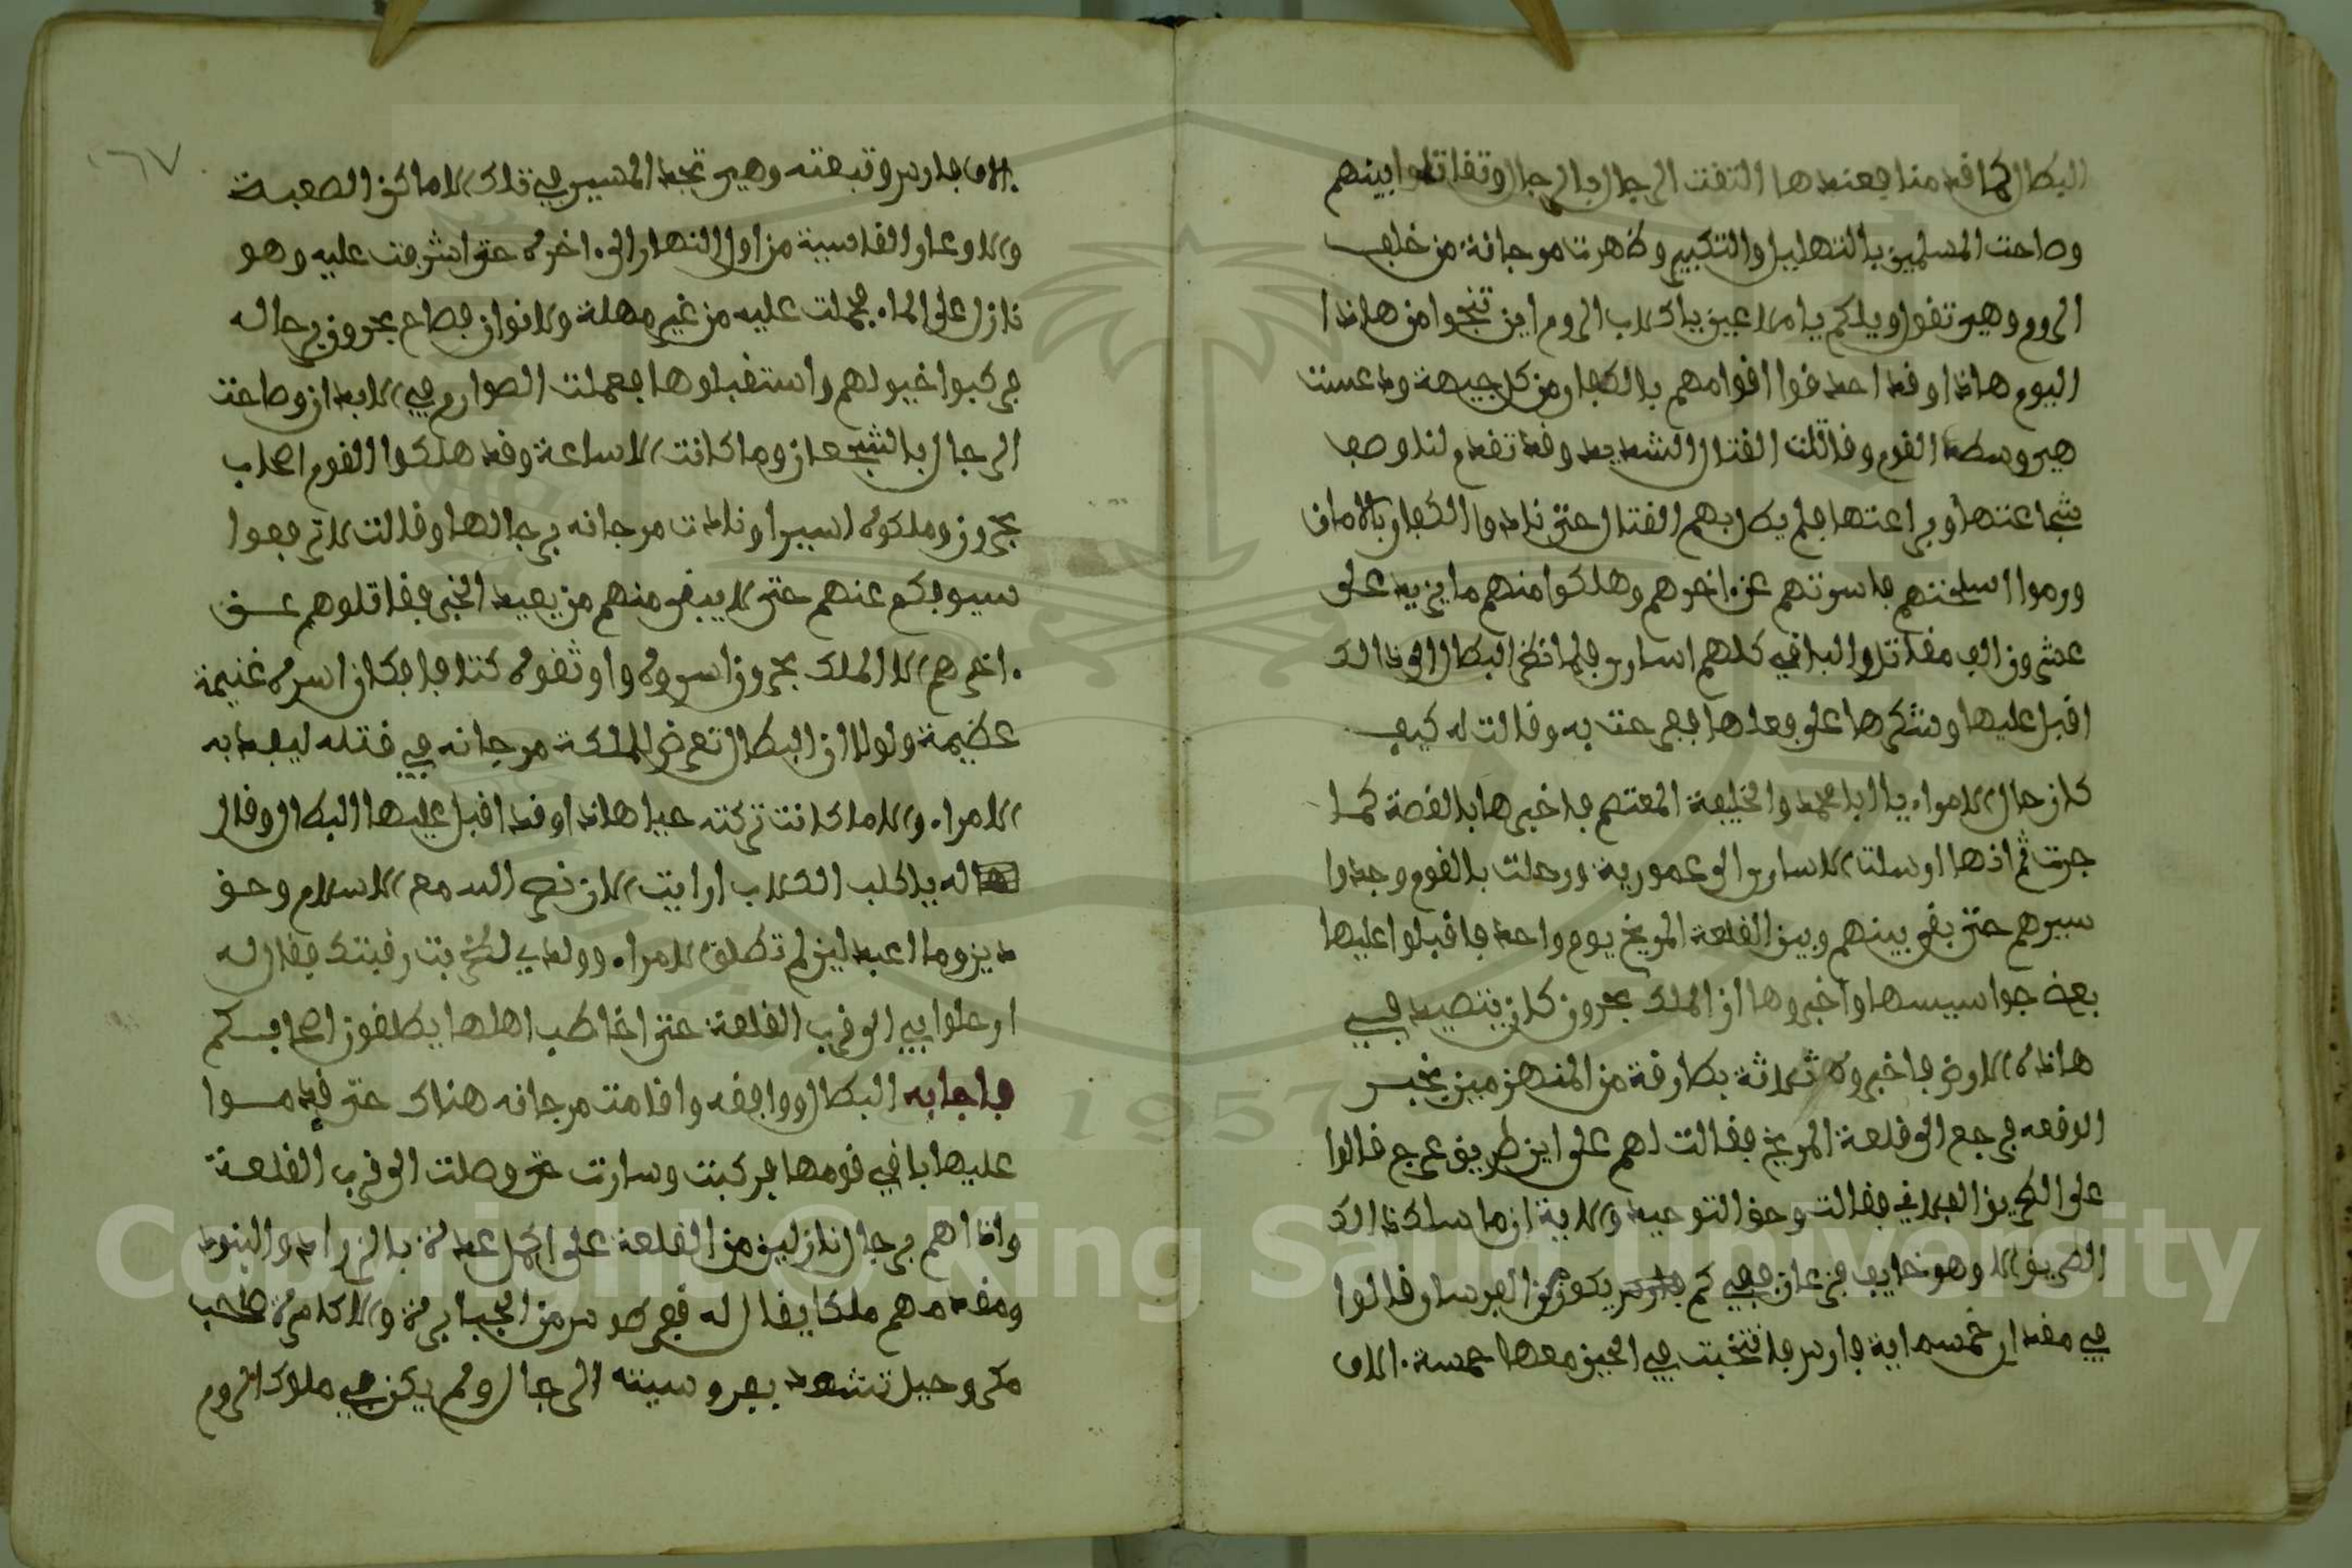 البطال كما قدمنا فعندها التفت الرجال بالرجال وتقاتلوا بينهم
وصاحت المسلمين بالتهليل والتكبير وظهرت مرجانة من خلف
الروم وهي تقول ويلكم يا ملاعين يا كلاب الروم اين تنجوا من هاذا
اليوم هاذا وقد احدقوا اقوامهم بالكفار من كل جيهة ودعست
هي وسط القوم وقاتلت القتال الشديد وقد تقدم لنا وصف
شجاعتها وبراعتها فلم يطل بهم القتال حتى نادوا الكفار بالامان
ورموا اسلحتهم فاسرتهم عن اخرهم وهلكوا منهم ما يزيد على
عشرون الف مقاتل والباقي كلهم اسارى فلما نظر البطال الى ذالك
اقبل عليها وشكرها على فعلها ففرحت به وقالت له كيف
كان حال الامراء يا ابا محمد والخليفة المعتصم فاخبرها بالقصة كما
جرت ثم انها ارسلت الاسارى الى عمورية ورحلت بالقوم وجدوا
سيرهم حتى بقي بينهم وبين القلعة المريخ يوم واحد فاقبلوا عليها
بعض جواسيسها واخبروها ان الملك بحرون كان يتصيد في
هاذه الارض فاخبروه ثلاثة بطارقة من المنهزمين بخبر
الوقعه فرجع الى قلعة المريخ فقالت لهم على اين طريق عرج قالوا
على الطريق الفلاني فقالت وحق التوحيد والابة ان ما سلك ذالك
الطريق الا وهو خايف فزعان ففي كم يكون من الفرسان قالوا
في مقدار خمسماية فارس فانتخبت في الحين معها خمسة الاف
١٦٧
الاف فارس وتبعته وهي تجد المسير في تلك الاماكن الصعبة
والاوعار القاسية من اول النهار الى اخره حتى اشرفت عليه وهو
نازل على الماء فحملت عليه من غير مهلة ولا توان فصاح بحرون برجاله
فركبوا خيولهم واستقبلوها فعملت الصوارم في الابدان وصاحت
الرجال بالشجعان وما كانت الا ساعة وقد هلكوا القوم اصحاب
بحرون وملكوه اسيرا ونادت مرجانه برجالها وقالت لا ترفعوا
سيوفكم عنهم حتى لا يبقى منهم من يعيد الخبر فقاتلوهم عن
اخرهم الا الملك بحرون اسروه واوثقوه كتافا فكان اسره غنيمة
عظيمة ولولا ان البطال تعرض للملكة مرجانه في قتله ليفد به
الامراء والا ما كانت تركته حيا هاذا وقد اقبل عليها البطال وقال
له يا كلب الكلاب ارايت الان نصر الله مع الاسلام وحق
دين وما اعبد لين لم تطلق الامراء وولدي لضربت رقبتك فقال له
ارحلوا بي الى قرب القلعة حتى اخاطب اهلها يطلقون اصحابكم
فاجابه البطال ووافقه واقامت مرجانه هناك حتى قدموا
عليها باقي قومها فركبت وسارت حتى وصلت الى قرب القلعة
واذاهم برجال نازلين من القلعة على اكمل عدة بالزراد والبنود
ومقدمهم ملكا يقال له من الجبابرة والاكاسرة صاحب
مكر وحيل تشهد بفروسيته الرجال ولم يكن في ملوك الروم